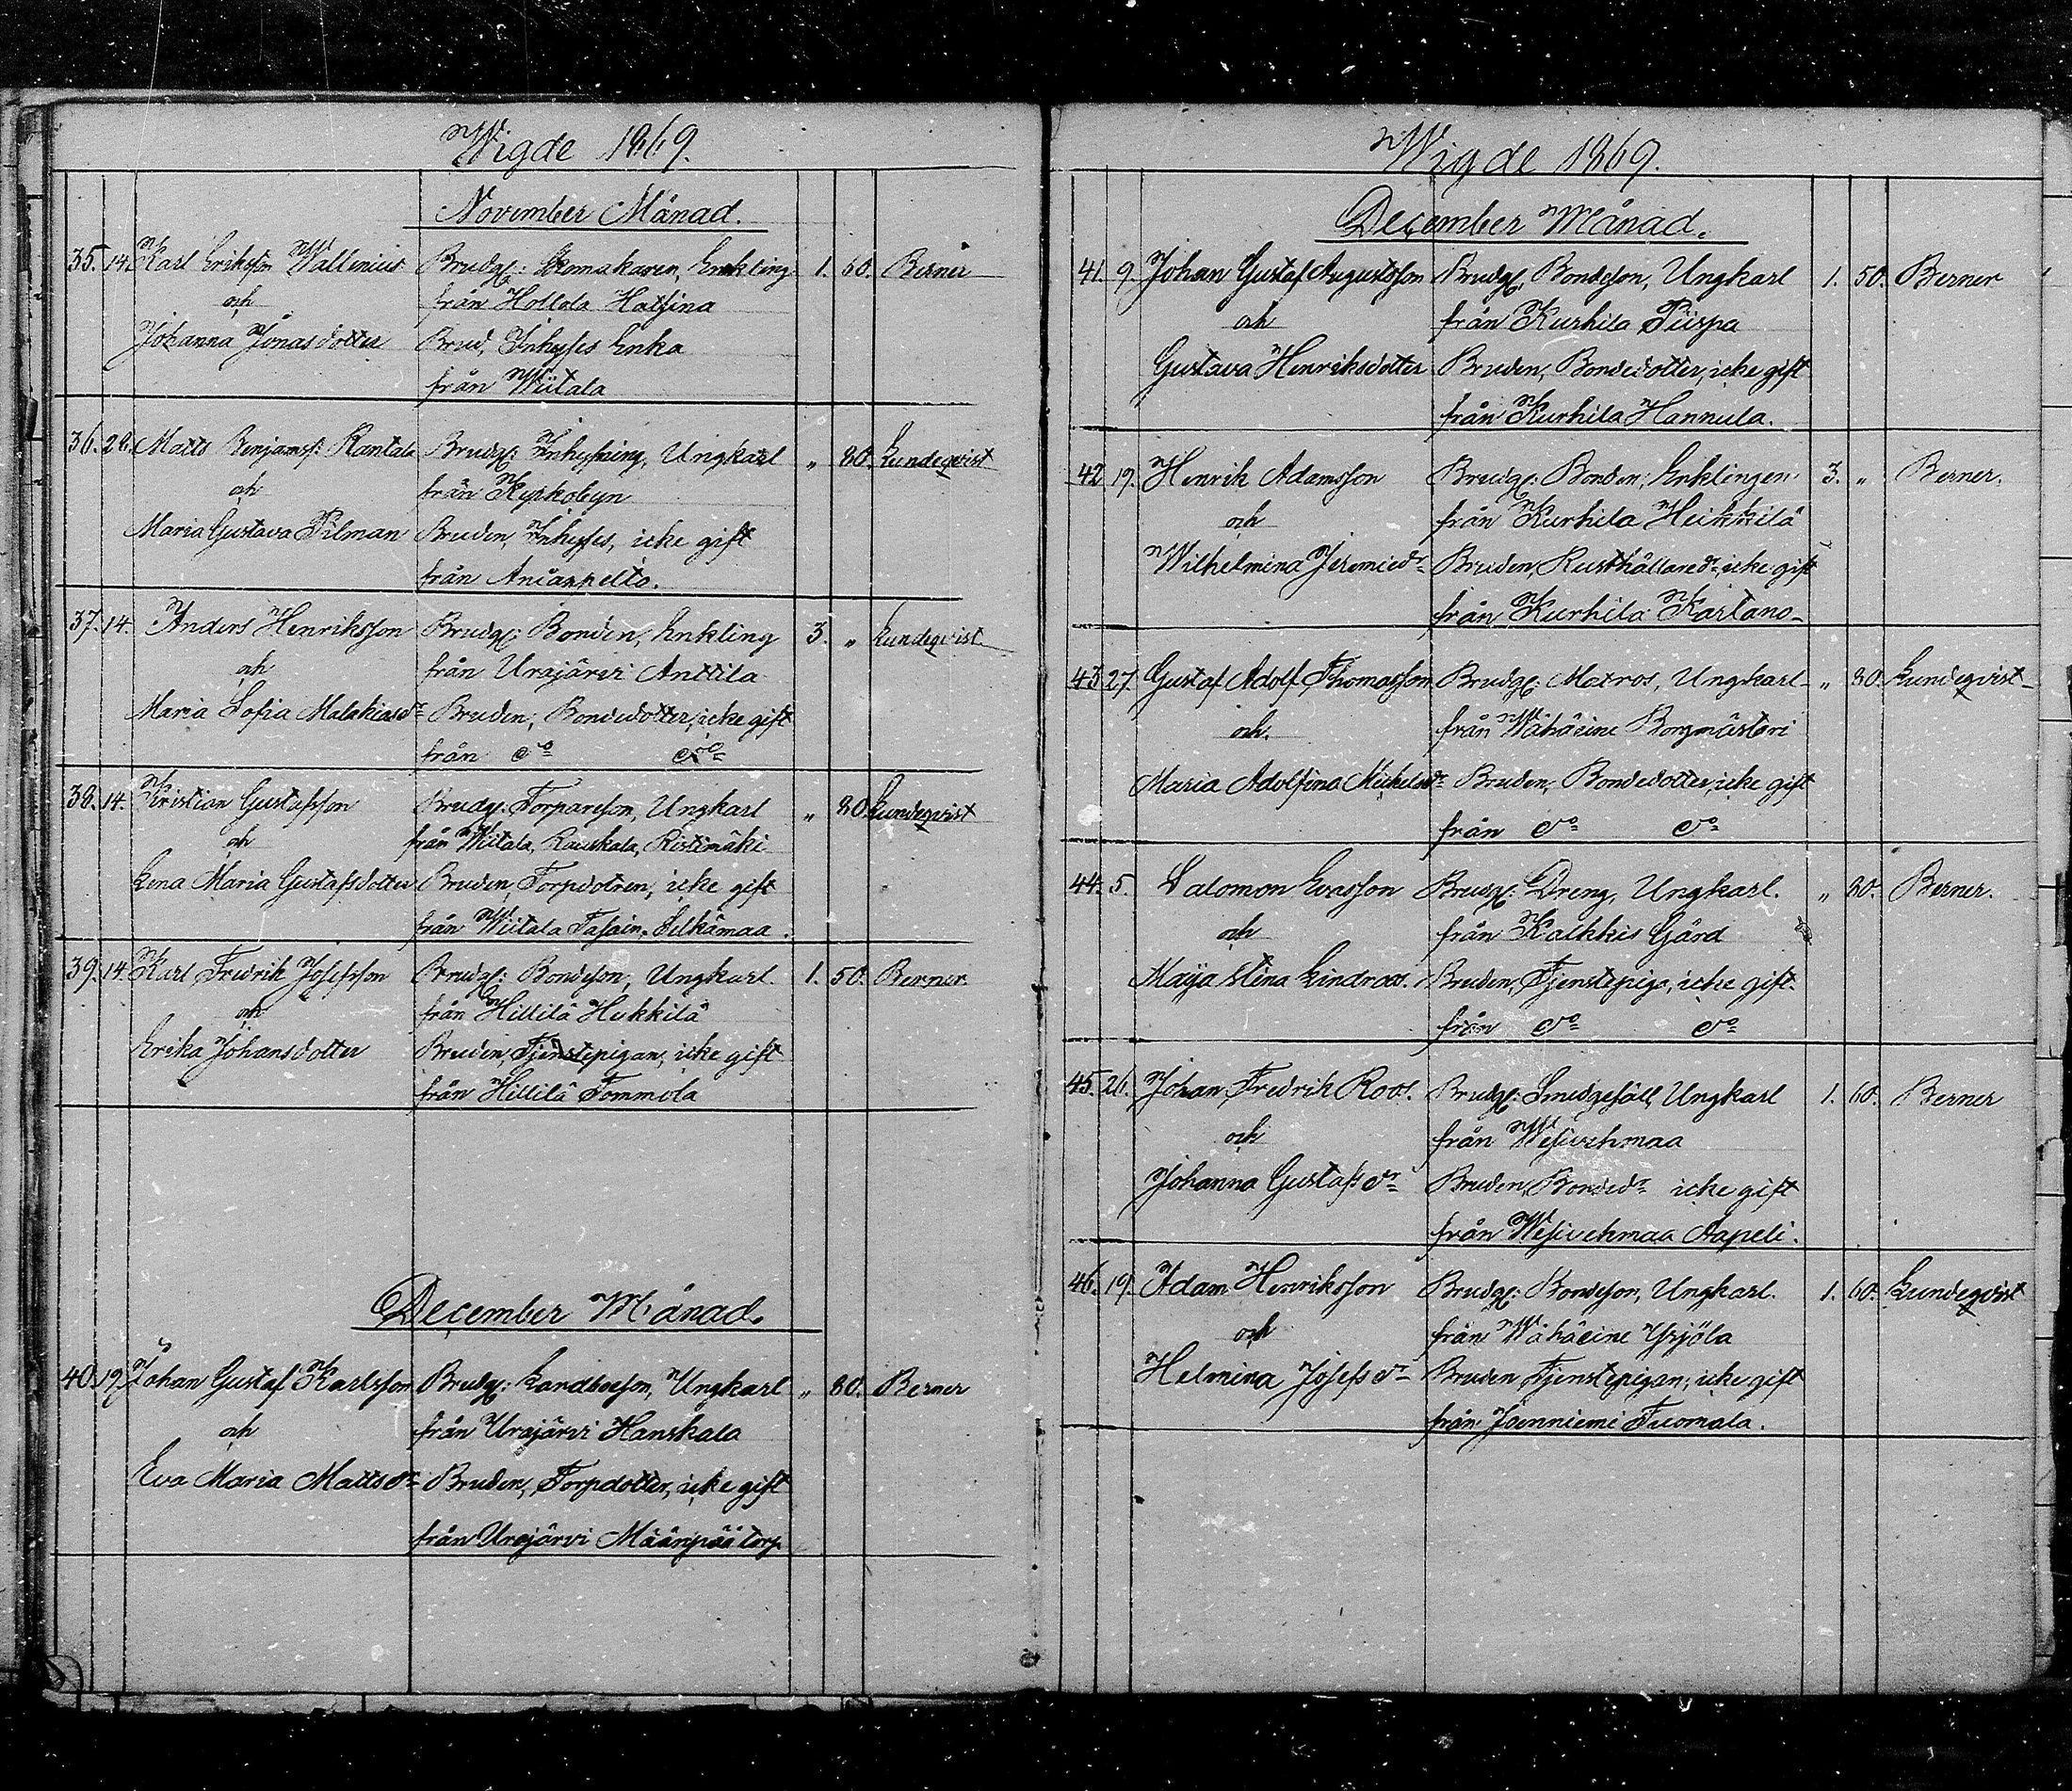 Wigde 1869.
November Månad.
35. 14. Karl Eriksson Wallenius Brudg: Skomakaren, Enkling 1. 60. Berner
och från Hollola Hatsina
Johanna Jonasdotter Brud, Inhyses Enka
från Wiitala
36. 28. Matts Benjamss: Rantala Brudg: Inhysing, Ungkarl " 80. Lundeqvist
och från Kyrkobyn
Maria Gustava Pilman Bruden, Inhyses, icke gift
från Anianpelto.
37. 14. Anders Henriksson Brudg: Bonden, Enkling 3. " Lundeqvist
och från Urajärvi Anttila
Maria Sofia Malakiasdr Bruden, Bondedotter, icke gift
från do do
38. 14. Kristian Gustafsson Brudg: Torpareson, Ungkarl " 80. Lundeqvist
och från Wiitala, Rauskala, Ristimäki
Lena Maria Gustafsdotter Bruden, Torpdotren, icke gift
från Wiitala Tasain, Silkämaa.
39. 14. Karl Fredrik Josefsson Brudg: Bondeson, Ungkarl. 1. 50. Berner.
och från Hillilä Heikkilä
Erika Johansdotter Bruden, Tjenstepigan, icke gift
från Hillilä Tommola
December Månad.
40. 19. Johan Gustaf Karlsson Brudg: Landboeson, Ungkarl " 80. Berner
och från Urajärvi Hanskala
Eva Maria Mattsdr Bruden, Torpdotter, icke gift
från Urajärvi Määnpää torp
Wigde 1869.
December Månad.
41. 9. Johan Gustaf Augustsson Brudg: Bondeson, Ungkarl 1. 50. Berner
och från Kurhila Piispa
Gustava Henriksdotter Bruden, Bondedotter, icke gift
från Kurhila Hannula.
42 19. Henrik Adamsson Brudg: Bonden, Enklingen 3. " Berner.
och från Kurhila Heikkilä
Wilhelmina Jeremiedr Bruden, Rusthållaredr, icke gift
från Kurhila Kartano
43 27. Gustaf Adolf Thomasson Brudg: Matros, Ungkarl " 80. Lundeqvist
och från Wähäeine Borgmästeri
Maria Adolfina Michelsdr Bruden, Bondedotter, icke gift
från do do
44. 5. Salomon Evasson Brudg: Dreng, Ungkarl. " 80. Berner.
och från Kalkkis Gård
Maja Stina Lindroos. Bruden, Tjenstepiga, icke gift.
från do do
45. 26. Johan Fredrik Roos. Brudg: Smedgesäll, Ungkarl 1. 60. Berner
och från Wesivehmaa
Johanna Gustafsdr Bruden, Bondedr icke gift
från Wesivehmaa Aapeli.
46. 19. Adam Henriksson Brudg: Bondeson, Ungkarl. 1. 60. Lundeqvist
och från Wähäeine Yrjölä
Helmina Josefsdr Bruden Tjenstepigan, icke gift
från Joenniemi Tuomala.